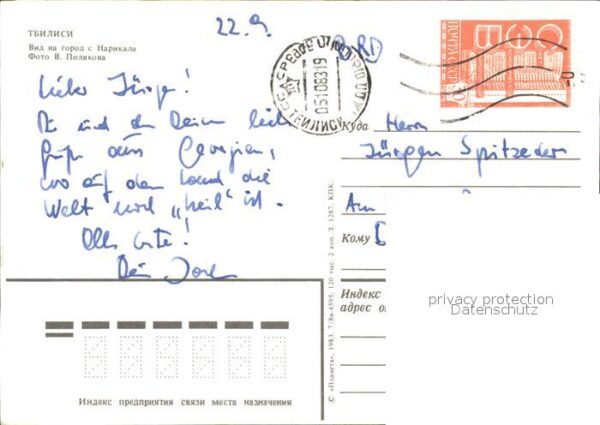 ТБИЛИСИ
Вид на город с Нарикала
Фото В. Полякова
22.9.
BRD
Lieber Jürgen!
Dir und den Deinen liebe
Grüße aus Georgien,
wo auf dem Land die
Welt noch „heil" ist.
Alles Gute!
Dein
СССР
ТБИЛИСИ
05108319
ПОЧТА СССР
СЭВ
Куда
Herrn
Jürgen Spitzeder
Am
Кому
Индекс
адрес о
privacy protection
Datenschutz
Индекс предприятия связи места назначения
© «Планета», 1983. 7/8в-4595. 120 тыс. 2 коп. З. 1287. КПК.